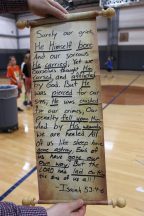 Surely our grief,
He Himself bore,
And our sorrows
He carried. Yet we
ourselves thought
and afflicted
by God. But He
was pierced for our
sins, He was crushed
for our crimes, Our
penalty fell upon Him
And by His wounds,
we are healed. All
of us like sheep have
gone astray. Each of
us have gone our
own way. But the
LORD had
sins of us all!
-Isaiah 53:4-6